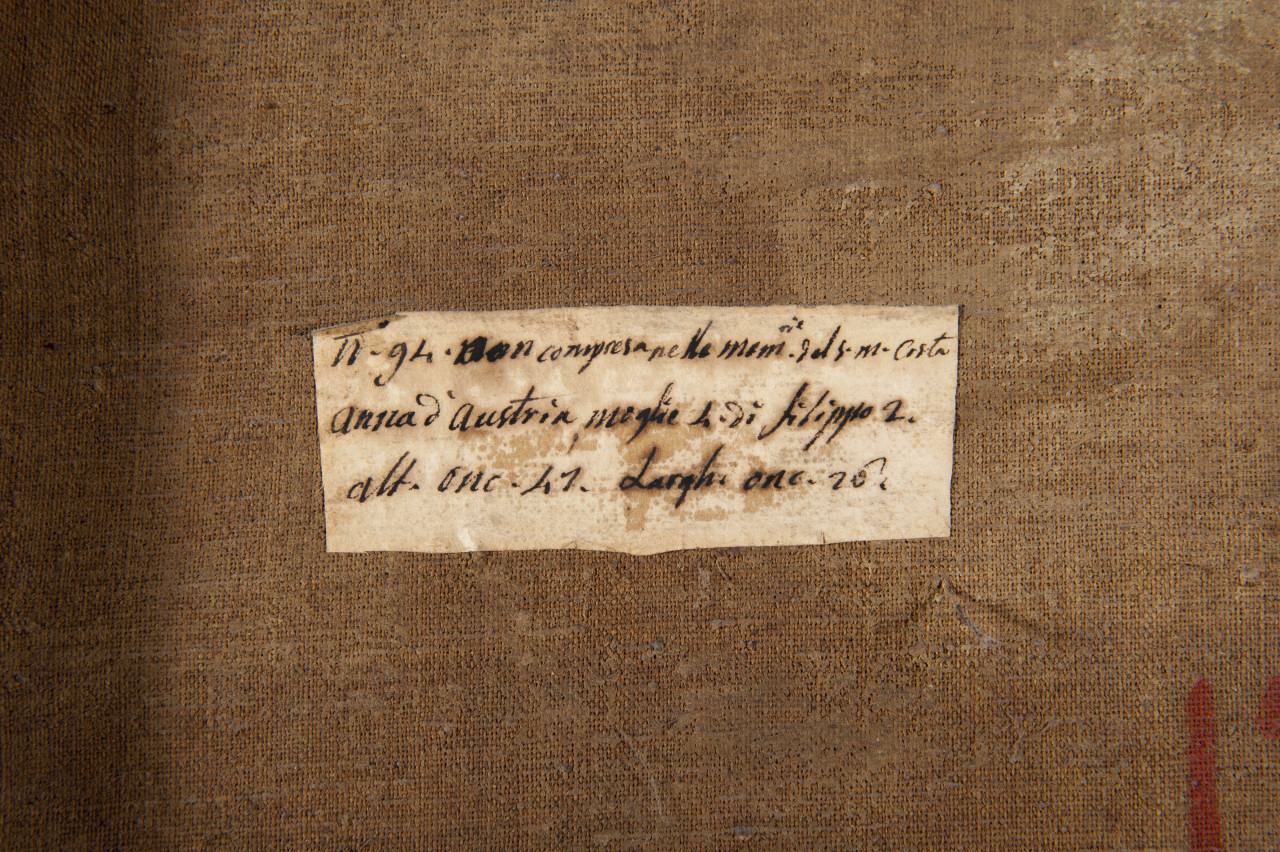 N. 94. non compresa nelle mem.rie del s. m. Costa
Anna d' Austria, moglie 4. di filippo 2.
alt. onc. 47. Largh. onc.